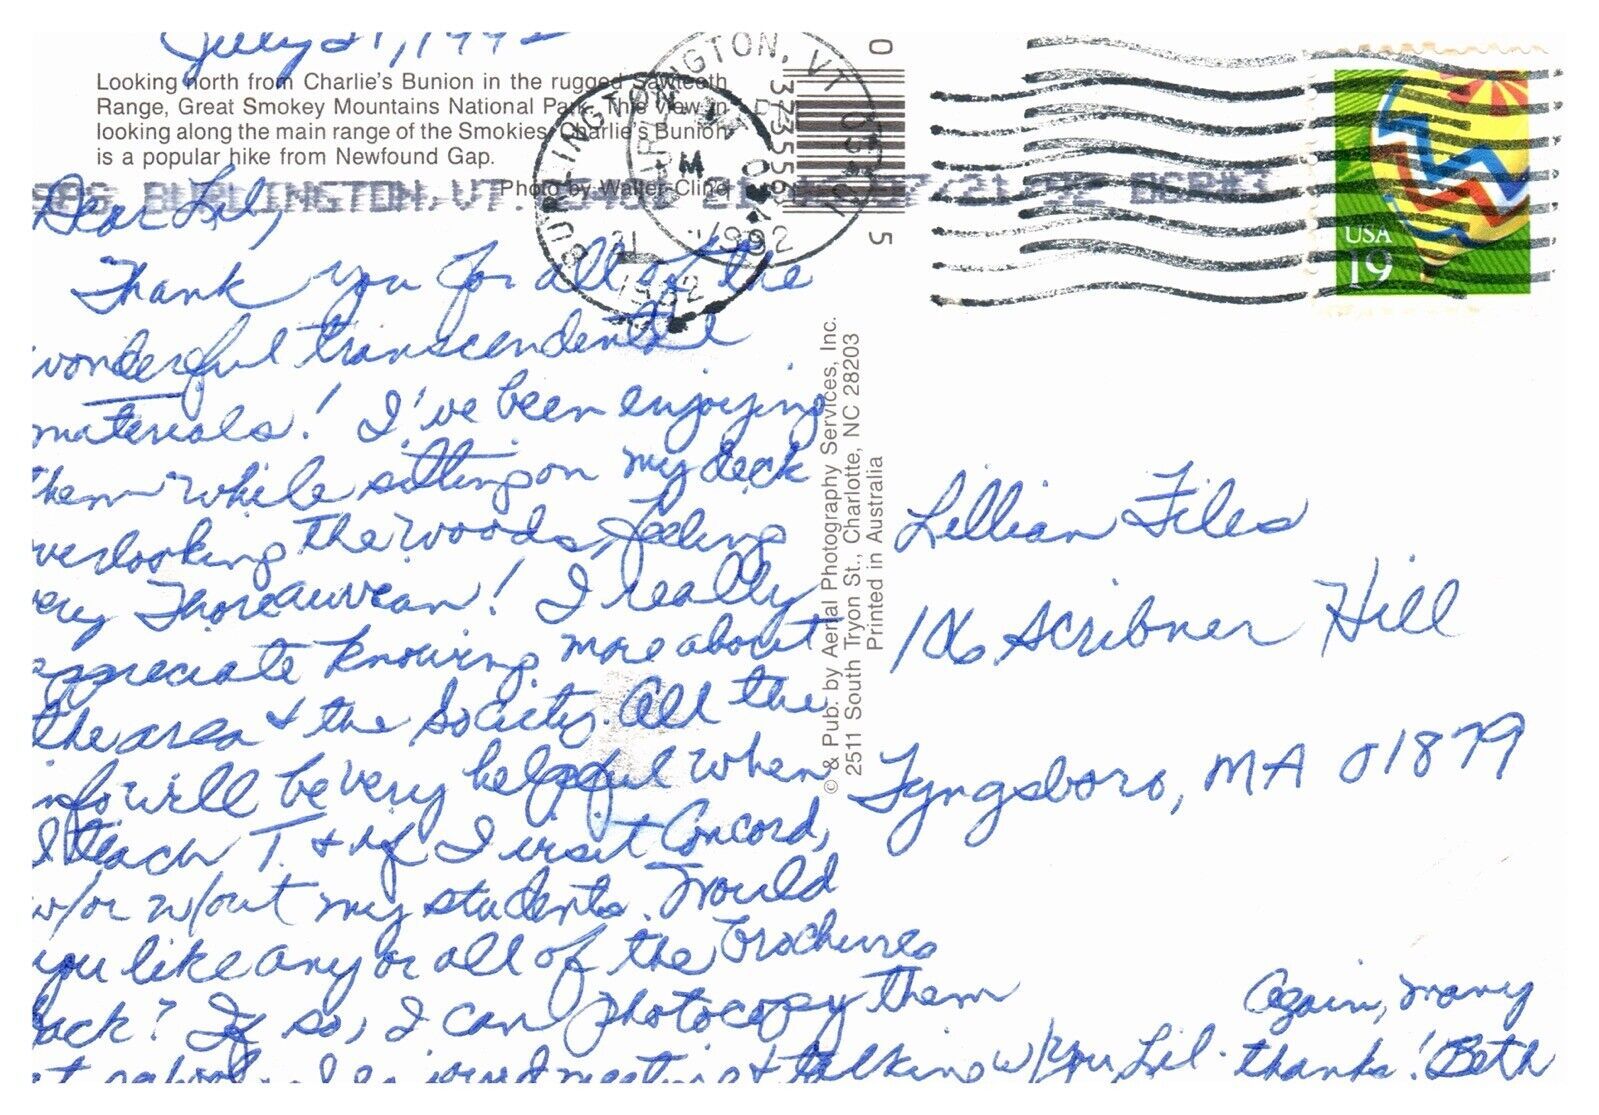 July 21, 1992
Looking north from Charlie's Bunion in the rugged Sawteeth
Range, Great Smokey Mountains National Park. This view in
looking along the main range of the Smokies. Charlie's Bunion
is a popular hike from Newfound Gap.
Photo by Walter Cline
BURLINGTON, VT
1992
BURLINGTON, VT
1992
BURLINGTON, VT. 07/21/92
0 37355 5
USA
19
Dear Lil,
Thank you for all of the
wonderful transcendental
materials! I've been enjoying
them while sitting on my deck
overlooking the woods, feeling
very Thoreauvean! I really
appreciate knowing more about
the area & the Society. All the
info will be very helpful when
I teach T. & if I visit Concord,
w/or w/out my students. Would
you like any or all of the brochures
back? If so, I can photocopy them
at school. I enjoyed meeting & talking w/you Lil.
Again, many
thanks! Beth
© & Pub. by Aerial Photography Services, Inc.
2511 South Tryon St., Charlotte, NC 28203
Printed in Australia
Lillian Files
186 Scribner Hill
Tyngsboro, MA 01879